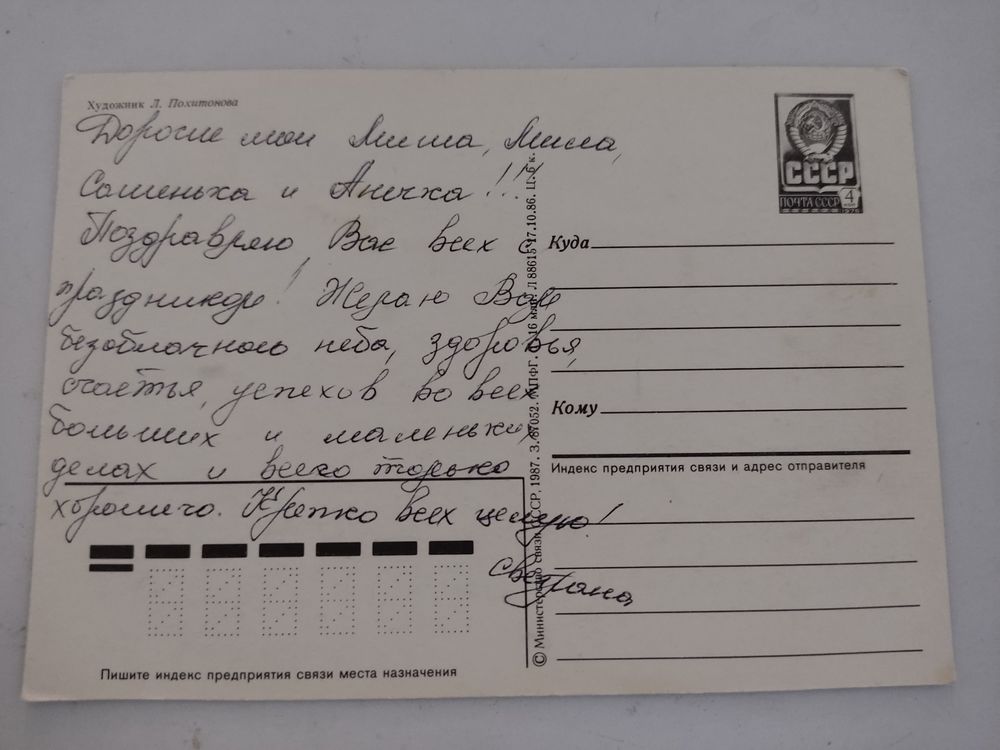 Художник Л. Похитонова
Дорогие мои Миша, Мила,
Сашенька и Анечка!!!
Поздравляю Вас всех с
праздником! Желаю Вам
безоблачного неба, здоровья,
счастья, успехов во всех
больших и маленьких
делах и всего только
хорошего. Крепко всех целую!
Светлана
Пишите индекс предприятия связи места назначения
© Министерство связи СССР, 1987. З. 67052. МПФГ. 16 млн. Л 88615 17.10.86. Ц. 6 к.
СССР
ПОЧТА СССР 4
1976
Куда
Кому
Индекс предприятия связи и адрес отправителя